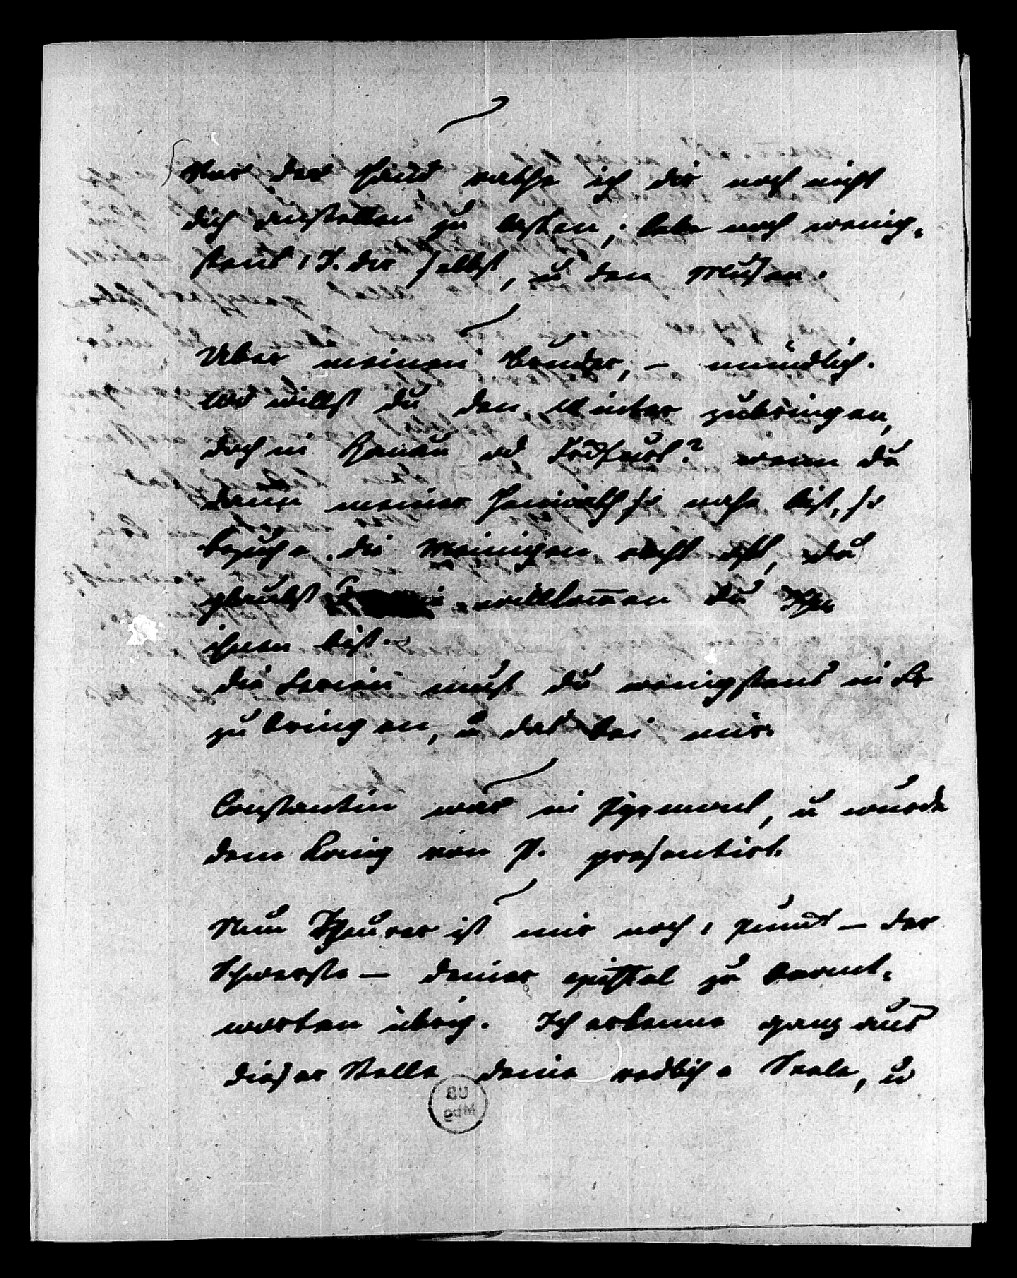 Vor der Hand rathe ich dir noch nicht
dich anstellen zu lassen, lebe noch wenig-
stens 1 J. dir selbst, u den Musen.
Über meinen Bruder, – mündlich.
Wo willst du den Winter zubringen,
doch in Hanau od
wenn du
dann meiner Heimath so nahe bist, so
besuche die Meinigen recht oft, du
glaubst willkommen du
ihnen bist.
die Ferien must du wenigstens in
zubringen, u das bei mir.
Constantin war in Pyrmont, u wurde
dem König von P. presentirt.
Nun Theurer ist mir noch 1 Punct – der
Schwerste – deiner Epistel zu beant-
worten übrig. Ich erkenne ganz aus
dieser Stelle deine redliche Seele, u
UB
Mbg